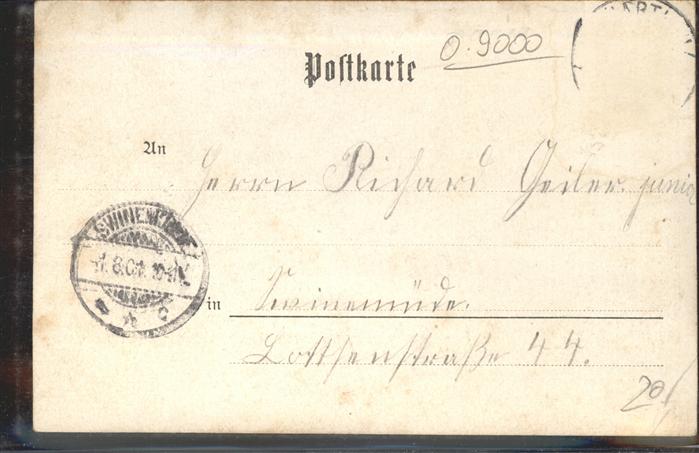 0.9000
Postkarte
An Herrn Richard Geiler junior
SWINEMÜNDE
1.8.01. 10-11 V.
* c
in Swinemünde.
Lotsenstraße 44.
20